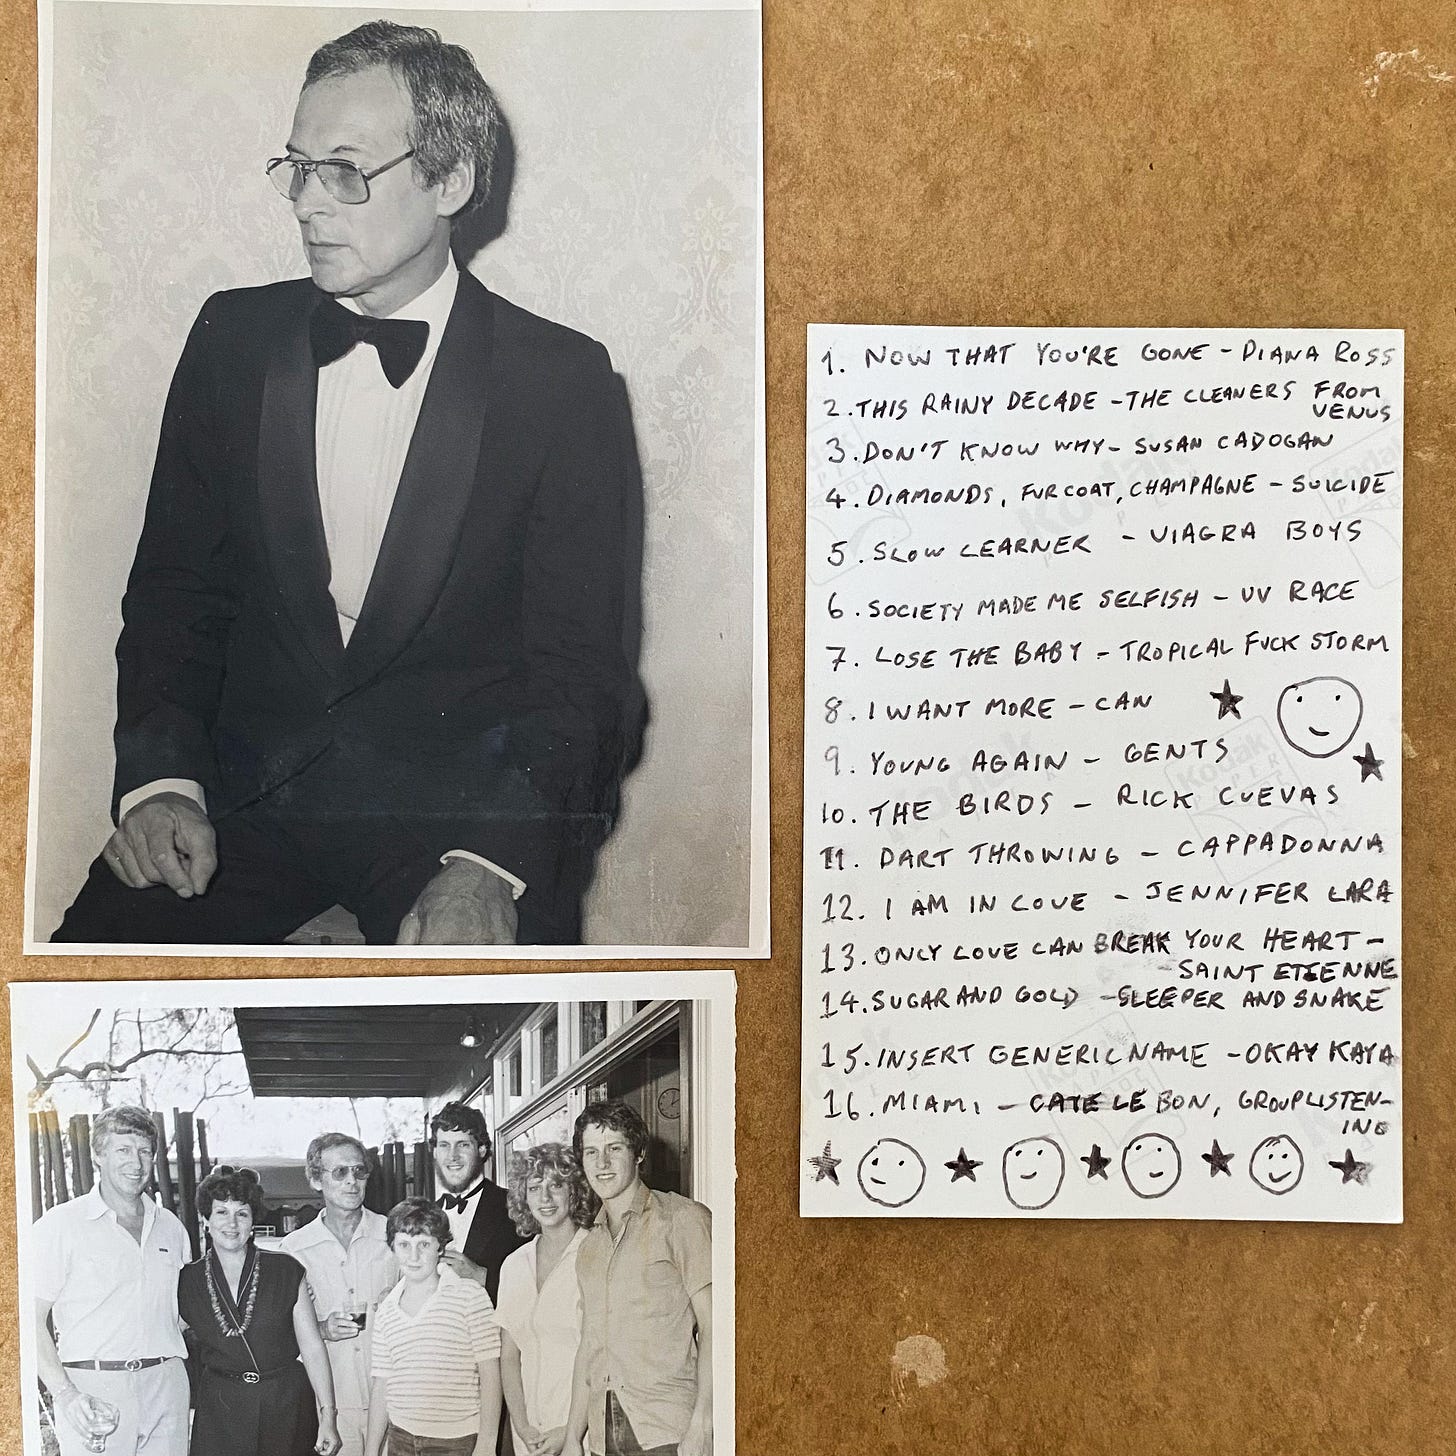 1. NOW THAT YOU'RE GONE - DIANA ROSS
2. THIS RAINY DECADE - THE CLEANERS FROM
VENUS
3. DON'T KNOW WHY - SUSAN CADOGAN
4. DIAMONDS, FUR COAT, CHAMPAGNE - SUICIDE
5. SLOW LEARNER - VIAGRA BOYS
6. SOCIETY MADE ME SELFISH - UV RACE
7. LOSE THE BABY - TROPICAL FUCK STORM
8. I WANT MORE - CAN
9. YOUNG AGAIN - GENTS
10. THE BIRDS - RICK CUEVAS
11. DART THROWING - CAPPADONNA
12. I AM IN LOVE - JENNIFER LARA
13. ONLY LOVE CAN BREAK YOUR HEART -
- SAINT ETIENNE
14. SUGAR AND GOLD - SLEEPER AND SNAKE
15. INSERT GENERIC NAME - OKAY KAYA
16. MIAMI - CATE LE BON, GROUP LISTEN-
ING
Kodak
Kodak
Kodak
PAPER